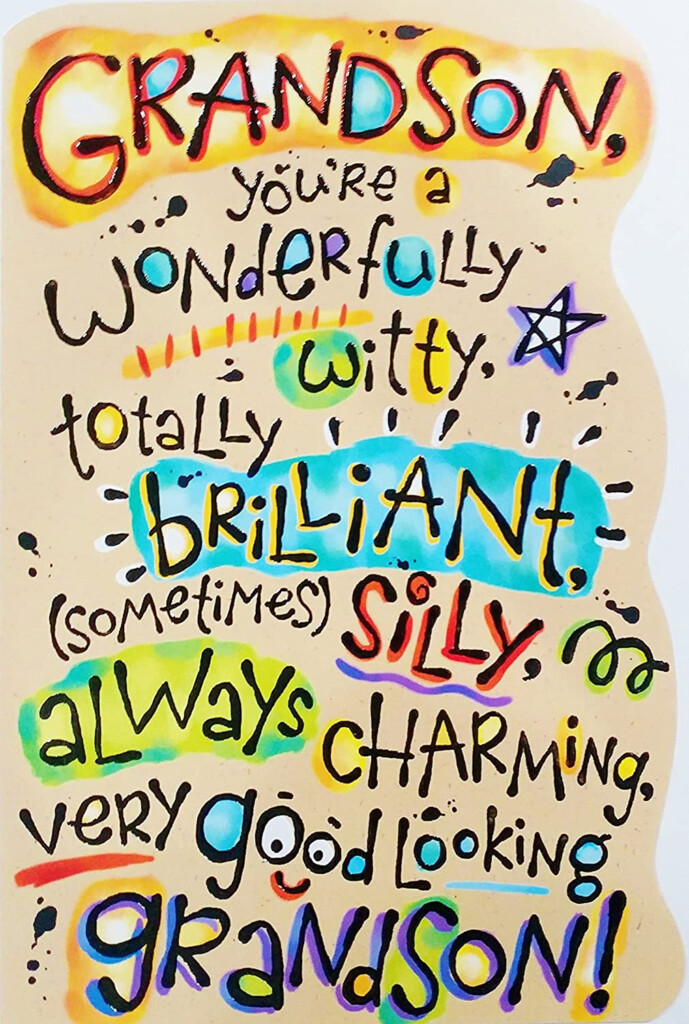 GRANDSON,
you're a
wonderfully
witty,
totally
brilliant,
(sometimes) silly,
always
charming,
very good looking
grandson!